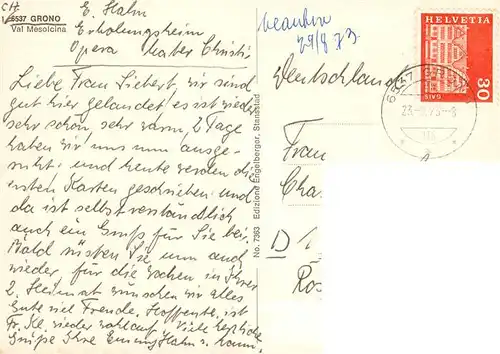 CH
6537 GRONO
Val Mesolcina
E. Hahn
Erholungsheim
Opera Mater Christi
Liebe Frau Siebert, wir sind
gut hier gelandet es ist wieder
sehr schön, sehr warm, 2 Tage
haben wir uns nun ausge-
ruht, und heute werden die
ersten Karten geschrieben und
da ist selbstverständlich
auch ein Gruß für Sie bei.
Bald rüsten Sie nun auch
wieder für die Wochen in Ihrer
2. Heimat wünschen wir alles
Gute viel Freude. Hoffentl. ist
Fr. Kl. wieder wohlauf. Viele herzliche
Grüße Ihre Emmy Hahn u.
No. 7363 Edizione Engelberger, Stansstad
29/8 73.
Deutschland
HELVETIA
SIVO
30
6537
23
Frau
Cha
D 1
Ro